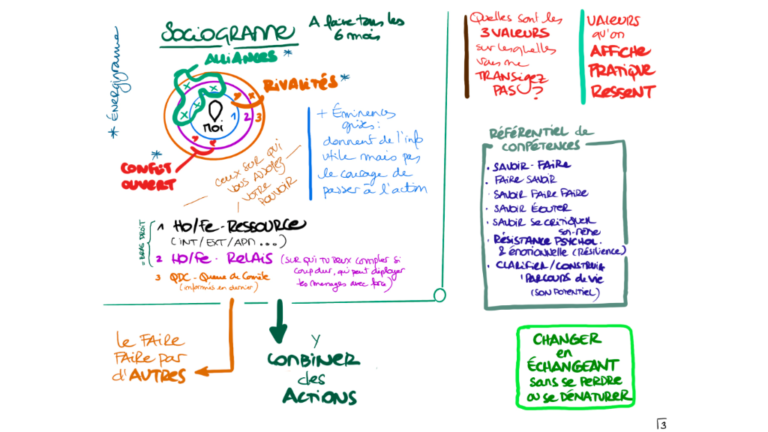 SOCIOGRAMME
A faire tous les
6 mois
* ÉNERGIGRAMME
ALLIANCES *
RIVALITÉS *
MOI
1
2
3
*
CONFLIT
OUVERT
+ Éminences
grises :
donnent de l'info
utile mais pas
le courage de
passer à l'action
CEUX SUR QUI
VOUS ASSOYEZ
VOTRE
POUVOIR
= BRAS DROIT
1 HO/FE - RESSOURCE
(INT/EXT/APM ....)
2 HO/FE - RELAIS (SUR QUI TU PEUX COMPTER SI
coup dur, qui peut déployer
les messages avec force)
3 QDC - Queue de Comète
(informés en dernier)
le FAIRE
FAIRE par
d'AUTRES
Y
COMBINER
des
ACTIONS
Quelles sont les
3 VALEURS
sur lesquelles
vous ne
TRANSIGEZ
PAS ?
VALEURS
qu'on
AFFICHE
PRATIQUE
RESSENT
RÉFÉRENTIEL de
COMPÉTENCES
• SAVOIR-FAIRE
• FAIRE SAVOIR
• SAVOIR FAIRE FAIRE
• SAVOIR ÉCOUTER
• SAVOIR SE CRITIQUER
soi-même
• RÉSISTANCE PSYCHOL.
& ÉMOTIONNELLE (Résilience)
• CLARIFIER / CONSTRUIRE
PARCOURS de vie
(SON POTENTIEL)
CHANGER
en
ÉCHANGEANT
sans se PERDRE
ou se DÉNATURER
3